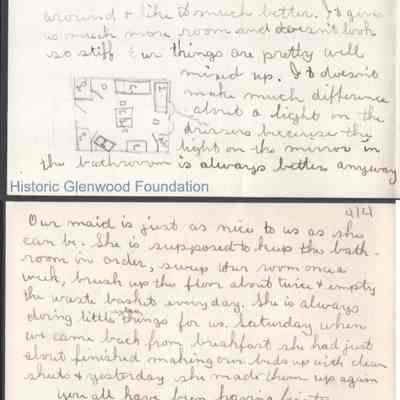 around & like to much better. It give
us much more room and doesn't look
so stiff & our things are pretty well
mixed up. It doesn't
make much difference
about a light on the
dressers because the
light on the mirror in
the bathroom is always better anyway
Historic Glenwood Foundation
4/4
Our maid is just as nice to us as she
can be. She is supposed to keep the bath-
room in order, sweep our room once a
week, brush up the floor about twice & empty
the waste baskets everyday. She is always
doing little extra things for us. Saturday when
we came back from breakfast she had just
about finished making our beds up with clean
sheets & yesterday she made them up again
you all have been having